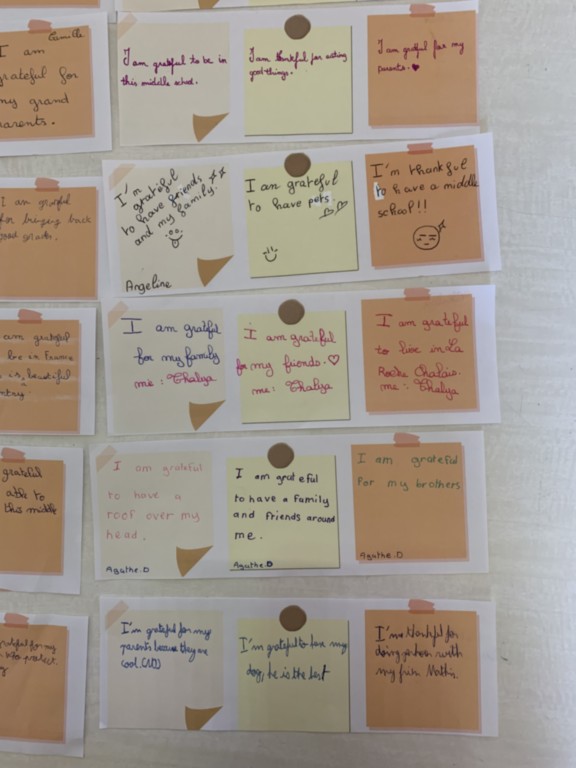 Camille
I am
grateful for
my grand
parents.
I am grateful to be in
this middle school.
I am thankful for eating
good things.
I am grateful for my
parents. ♥
I am grateful
for bringing back
good grades.
I'm
grateful
to have friends
and my family.
Angeline
I am grateful
to have pets.
I'm thankful
to have a middle
school!!
am grateful
live in France
is beautiful
I am grateful
for my family
me: Thalya
I am grateful
for my friends. ♡
me: Thalya
I am grateful
to live in La
Roche Chalais.
me: Thalya
grateful
able to
this middle
I am grateful
to have a
roof over my
head.
Agathe.D
I am grateful
to have a family
and friends around
me.
Agathe.D
I am grateful
for my brothers
Agathe.D
for my
who protect
I'm grateful for my
parents because they are
cool.
I'm grateful to have my
dog, he is the best
I'm thankful for
with
my